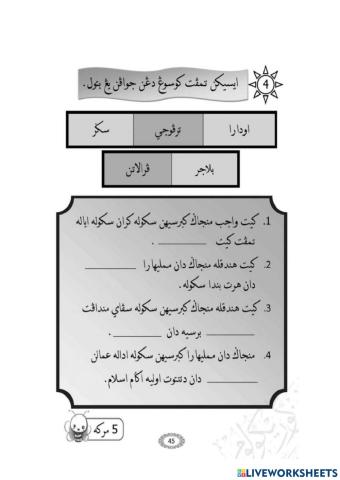 4
ايسيكن تمڤت كوسوڠ دڠن جواڤن يڠ بتول.
اودارا
ترڤوجي
سكز
بلاجر
ڤرالاتن
1. كيت واجب منجاݢ كبرسيهن سكوله كران سكوله اياله
تمڤت كيت ________ .
2. كيت هندقله منجاݢ دان ممليهارا ________
دان هرت بندا سكوله.
3. كيت هندقله منجاݢ كبرسيهن سكوله سڤاي منداڤت
________ برسيه دان ________.
4. منجاݢ دان ممليهارا كبرسيهن سكوله اداله عمالن
________ دان دتونتوت اوليه اݢام اسلام.
5 مركه
45
LIVEWORKSHEETS